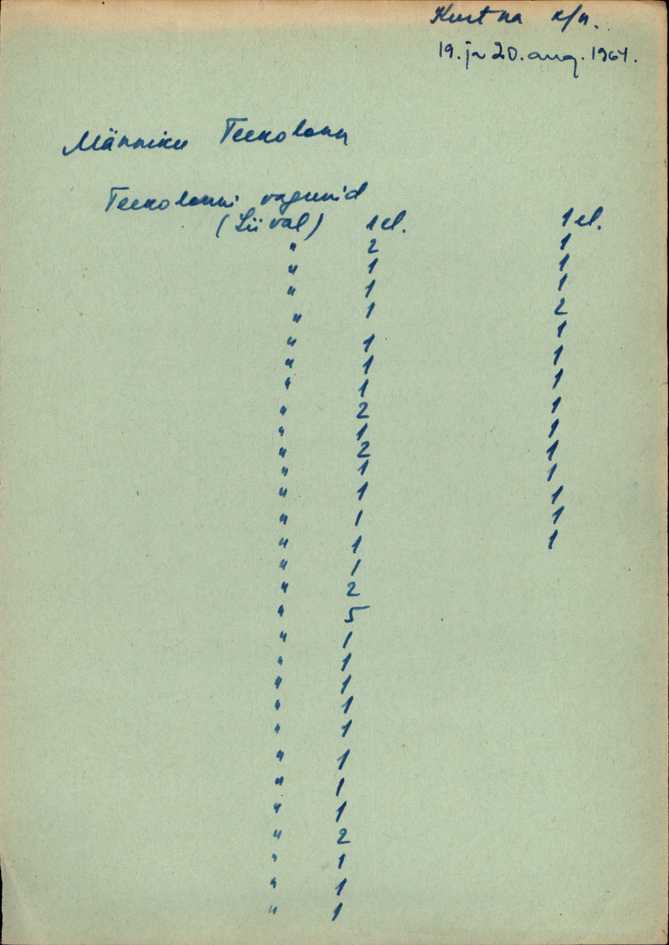 Kurtna k/n.
19. ja 20. aug. 1964.
Männiku Teekolonn
Teekolonni vagunid
(Liival) 1 el. 1 el.
" 2 1
" 1 1
" 1 1
" 1 2
" 1 1
" 1 1
" 1 1
" 2 1
" 1 1
" 2 1
" 1 1
" 1 1
" 1 1
" 1 1
" 1
" 2
" 5
" 1
" 1
" 1
" 1
" 1
" 1
" 1
" 1
" 2
" 1
" 1
" 1